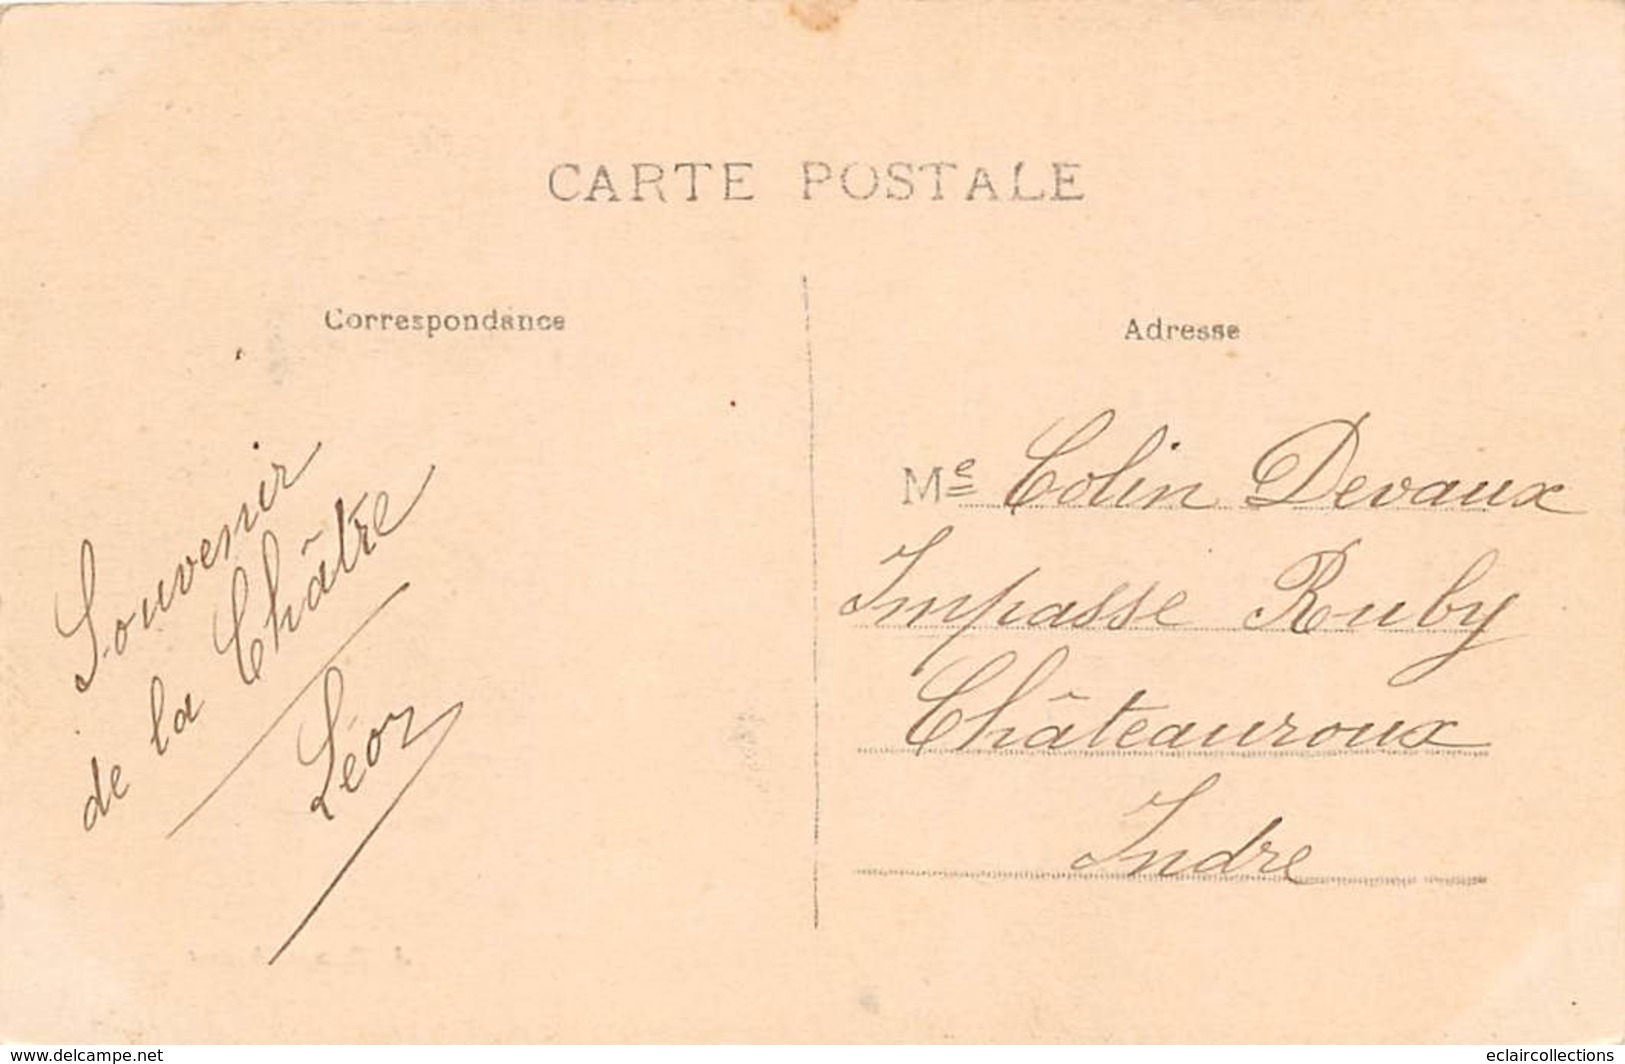 CARTE POSTALE
Correspondance
Souvenir
de la Châtre
Léon
Adresse
Me Colin Devaux
Impasse Ruby
Châteauroux
Indre
www.delcampe.net
eclaircollections